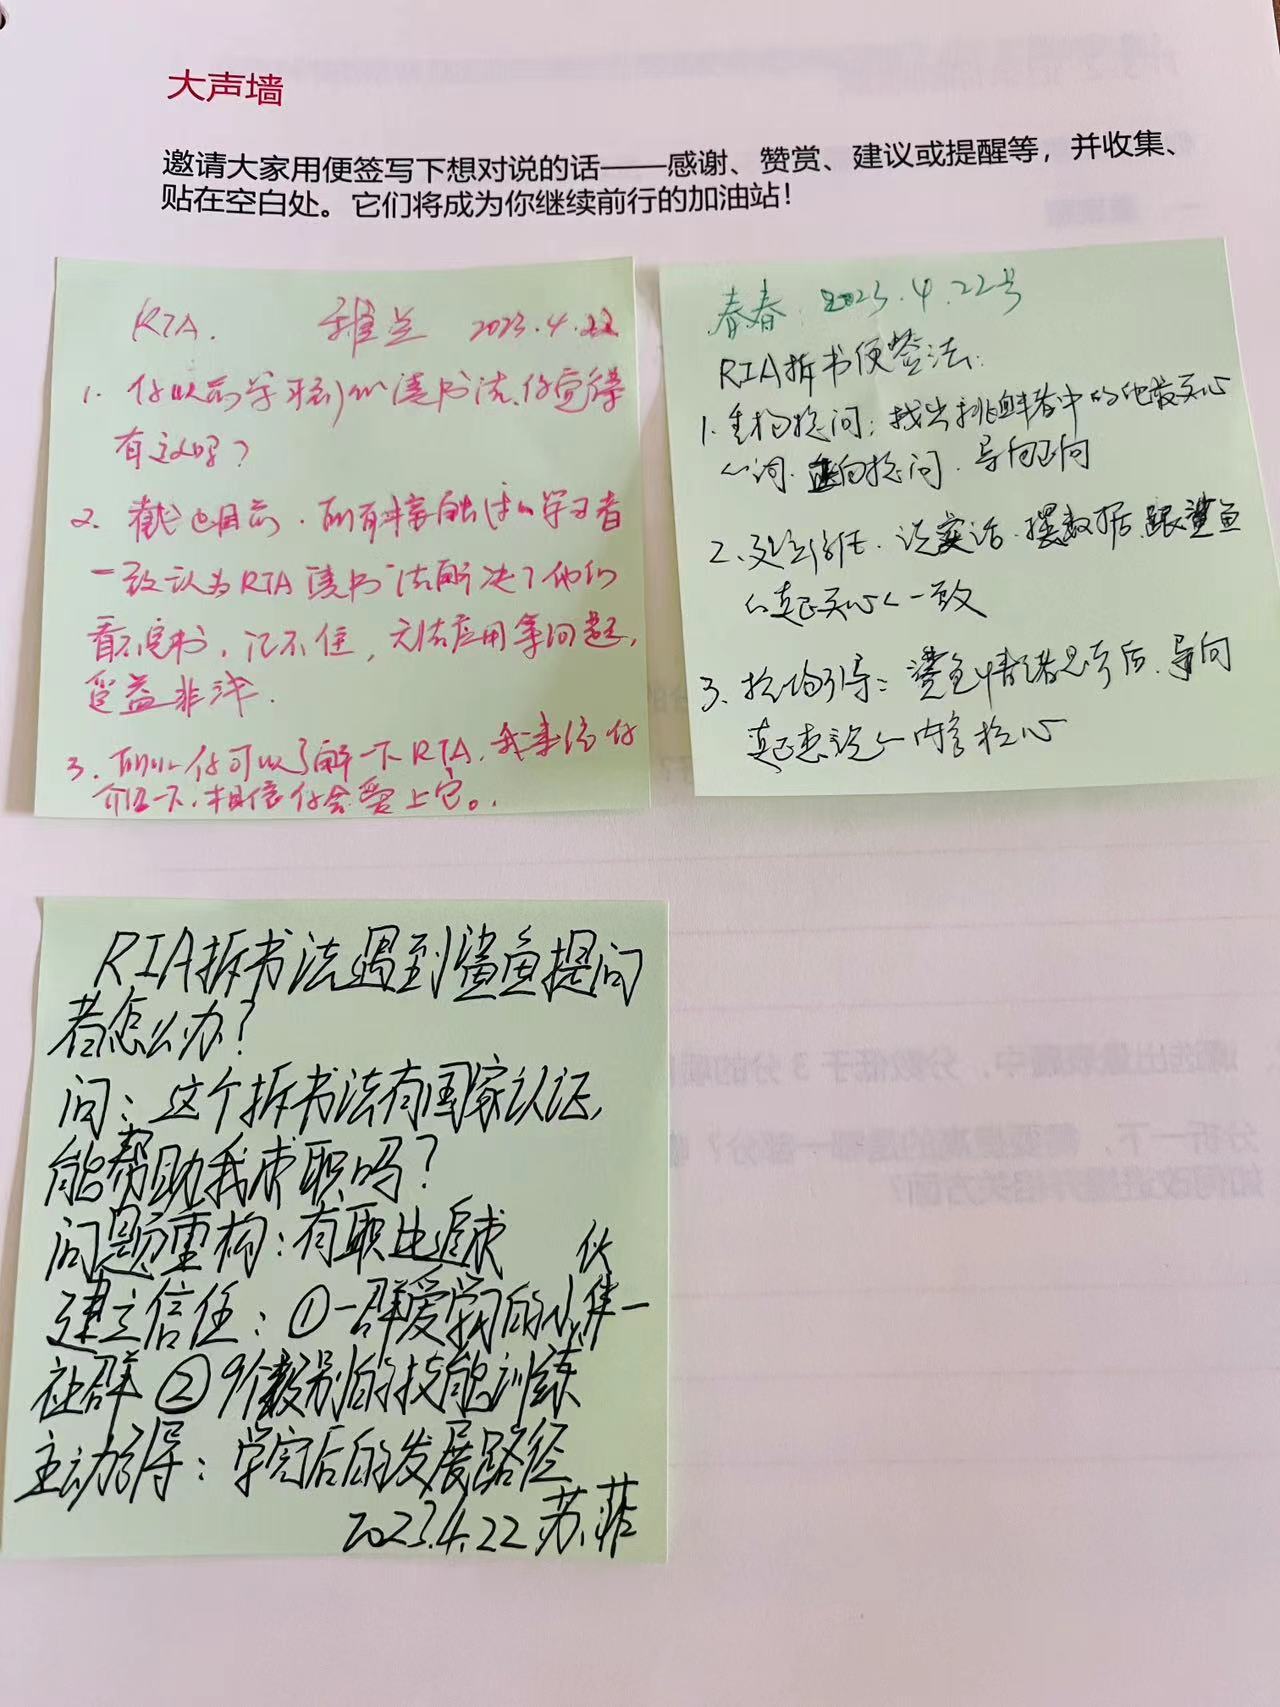 大声墙
邀请大家用便签写下想对说的话——感谢、赞赏、建议或提醒等，并收集、
贴在空白处。它们将成为你继续前行的加油站！
RIA. 雅兰 2023.4.22
1. 你以前学习到的读书法,你觉得
有效吗?
2. 截止目前，所有接触过的学习者
一致认为RIA读书法解决了他们
看不完书，记不住，无法应用等问题，
受益非浅.
3. 所以你可以了解一下RIA，我来给你
介绍一下，相信你会爱上它。
春春: 2023.4.22号
RIA拆书便签法:
1. 重构提问：找出挑衅者中的他最关心
的词. 正向提问. 导向正向
2、建立信任. 说实话. 摆数据. 跟鲨鱼
的真正关心的一致
3. 引导: 鲨鱼情绪思考后. 导向
真正想说的内容核心
RIA拆书法遇到鲨鱼提问
者怎么办?
问：这个拆书法有国家认证,
能帮助我求职吗?
问题重构：有职业追求
建立信任：①一群爱学习的小伙伴一
社群 ②9个级别的技能训练
主动引导：学完后的发展路径
2023.4.22 苏菲